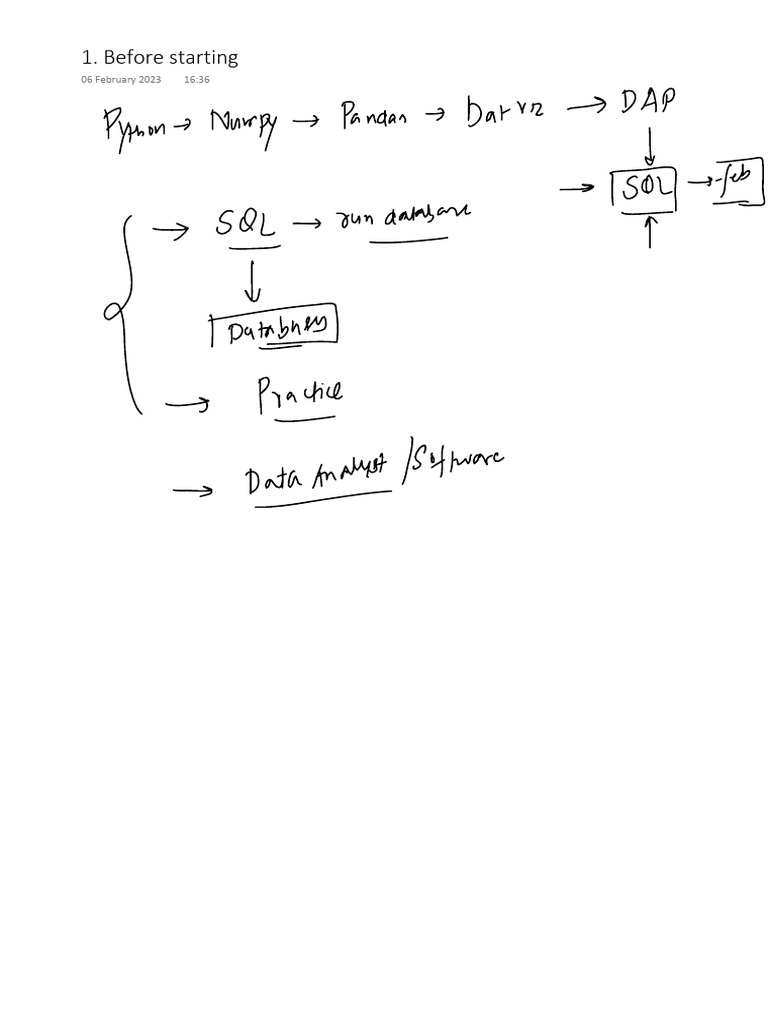 1. Before starting
06 February 2023 16:36
Python → Numpy → Pandas → → DAP
→ SQL → feb
→ SQL → run database
→ Practice
→ Data Analyst / Software